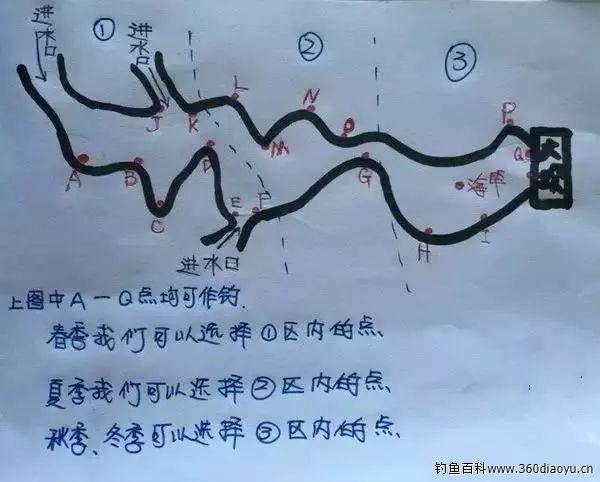 进水口
①
进水口
②
③
L
N
P
J
K
O
M
D
Q
大坝
A
B
G
海竿
C
E
F
H
I
进水口
上图中A一Q点均可作钓.
春季我们可以选择①区内的点、
夏季我们可以选择②区内的点、
秋季、冬季可以选择③区内的点、
钓鱼百科www.360diaoyu.cn